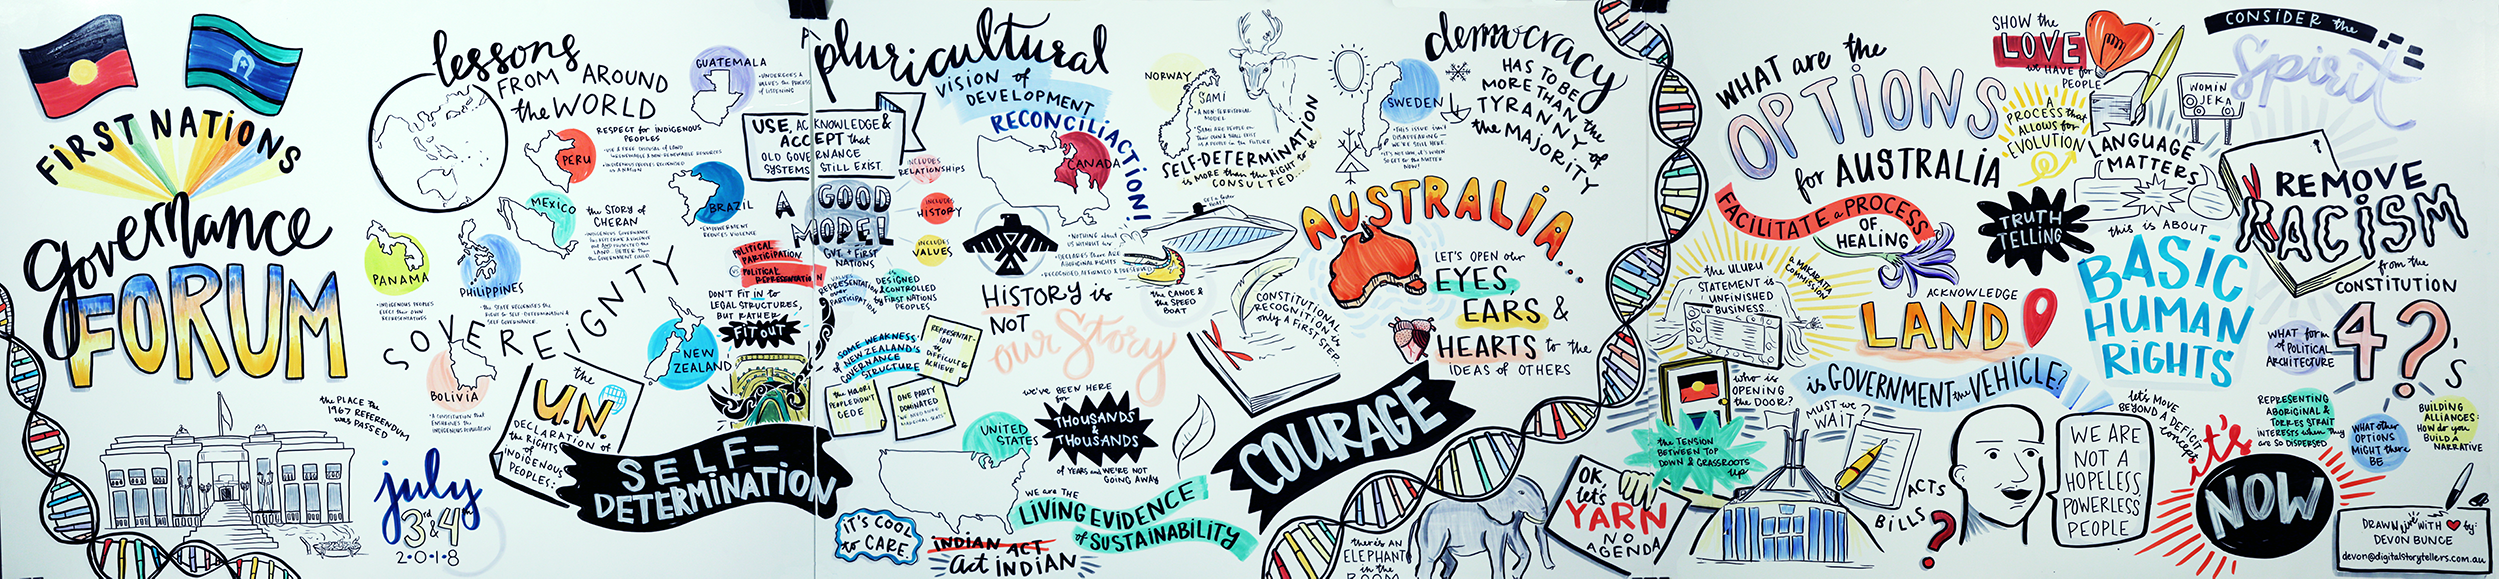 FIRST NATIONS
governance
FORUM
the PLACE the
1967 REFERENDUM
was PASSED
july
3rd & 4th
2·0·1·8
lessons
FROM AROUND
the WORLD
GUATEMALA
RESPECT for INDIGENOUS
PEOPLES
PERU
MEXICO
the STORY of
CHERAN
BRAZIL
•EMPOWERMENT
REDUCES VIOLENCE
PANAMA
•INDIGENOUS PEOPLES
ELECT their OWN
REPRESENTATIVES
PHILIPPINES
SOVEREIGNTY
BOLIVIA
•A CONSTITUTION that
ENSHRINES the
INDIGENOUS POPULATION
the
U.N.
DECLARATION of
the RIGHTS
of
INDIGENOUS
PEOPLES:
SELF-
DETERMINATION
NEW
ZEALAND
POLITICAL
PARTICIPATION
vs POLITICAL
REPRESENTATION
DON'T FIT IN to
LEGAL STRUCTURES,
BUT RATHER
FIT OUT
USE, ACKNOWLEDGE &
ACCEPT that
OLD GOVERNANCE
SYSTEMS STILL EXIST.
pluricultural
VISION of
DEVELOPMENT
RECONCILIACTION!
A GOOD
MODEL
GVT + FIRST
NATIONS
INCLUDES
RELATIONSHIPS
INCLUDES
HISTORY
INCLUDES
VALUES
is DESIGNED
& CONTROLLED
by FIRST NATIONS
PEOPLES
VALUES
REPRESENTATION
over
PARTICIPATION
SOME WEAKNESS'
of NEW ZEALAND'S
GOVERNANCE
STRUCTURE
REPRESENTAT-
ION
is DIFFICULT to
ACHIEVE
the MAORI
PEOPLE DIDN'T
CEDE
ONE PARTY
DOMINATED
CANADA
•NOTHING about
US WITHOUT us
•DECLARES THERE ARE
ABORIGINAL RIGHTS
•RECOGNISED, AFFIRMED & PRESERVED
HISTORY is
NOT
our Story
the CANOE &
the SPEED
BOAT
WE'VE BEEN HERE
for
THOUSANDS
&
THOUSANDS
of YEARS and WE'RE NOT
GOING AWAY
UNITED
STATES
WE are THE
LIVING EVIDENCE
of SUSTAINABILITY
IT'S COOL
to CARE.
INDIAN ACT
act INDIAN
NORWAY
SAMI
•A NON TERRITORIAL
MODEL
SELF-DETERMINATION
is MORE than the RIGHT to be
CONSULTED...
SWEDEN
•THIS ISSUE isn't
DISAPPEARING—
WE'RE STILL HERE.
democracy
HAS TO BE
MORE THAN the
TYRANNY of
the MAJORITY
AUSTRALIA...
LET'S OPEN our
EYES,
EARS &
HEARTS to the
IDEAS of OTHERS
CONSTITUTIONAL
RECOGNITION is
only a FIRST STEP
COURAGE
there's AN
ELEPHANT
in the
ROOM
OK,
let's
YARN
NO
AGENDA
WHAT are the
OPTIONS
for AUSTRALIA
SHOW the
LOVE
we HAVE for
PEOPLE
A
PROCESS that
ALLOWS for
EVOLUTION
WOMIN
JEKA
LANGUAGE
MATTERS
CONSIDER the
Spirit
FACILITATE a PROCESS
OF HEALING
TRUTH
TELLING
the ULURU
STATEMENT is
UNFINISHED
BUSINESS...
a MAKARATA
COMMISSION
ACKNOWLEDGE
LAND
this is ABOUT
BASIC
HUMAN
RIGHTS
REMOVE
RACISM
from the
CONSTITUTION
WHAT form
of POLITICAL
ARCHITECTURE
4 ?'s
WHO is
OPENING
the DOOR?
is GOVERNMENT the VEHICLE?
MUST we
WAIT?
the TENSION
BETWEEN TOP
DOWN & GRASSROOTS
up
ACTS
BILLS
?
let's MOVE
BEYOND A DEFICIT
concept
WE ARE
NOT A
HOPELESS,
POWERLESS
PEOPLE
REPRESENTING
ABORIGINAL &
TORRES STRAIT
INTERESTS when they
ARE SO DISPERSED
WHAT other
OPTIONS
MIGHT there
BE
BUILDING
ALLIANCES:
HOW do you
BUILD A
NARRATIVE
it's
NOW
DRAWN live WITH ♥ by:
DEVON BUNCE
devon@digitalstorytellers.com.au